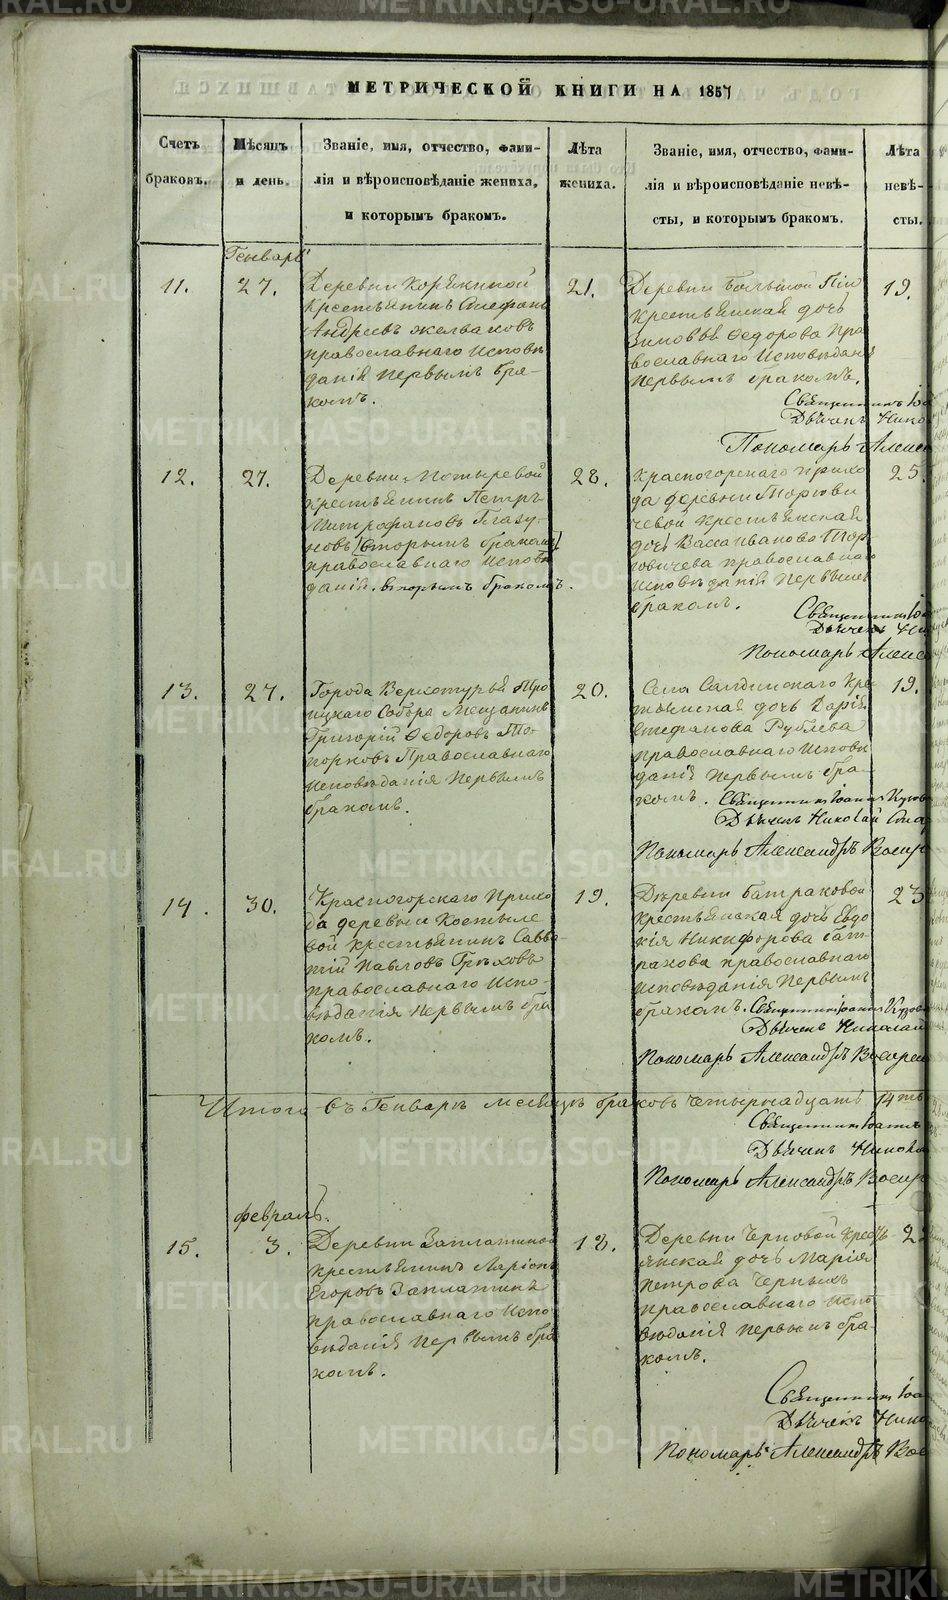 МЕТРИЧЕСКОЙ КНИГИ НА 1857
Счетъ браковъ.
Мѣсяцъ и день.
Званіе, имя, отчество, фами-
лія и вѣроисповѣданіе жениха,
и которымъ бракомъ.
Лѣта жениха.
Званіе, имя, отчество, фами-
лія и вѣроисповѣданіе невѣ-
сты, и которымъ бракомъ.
Лѣта невѣ-
сты.
Генварь
11.
27.
Деревни Корякиной
Крестьянинъ Стефанъ
Андреевъ Желваковъ
православнаго исповѣ
данія первымъ бра-
комъ.
21.
Деревни Большой
Крестьянская дочь
Зиновья Федорова
вославнаго исповѣдан
первымъ бракомъ.
19.
Священникъ
Дьячекъ
Пономарь
12.
27.
Деревни
крестьянинъ Петръ
Митрофановъ Глазу-
новъ [вторымъ бракомъ]
православнаго исповѣ
данія. вторымъ бракомъ.
28.
Красногорскаго прихо
да деревни
чевой крестьянская
дочь Васса Иванова Тор
говичева православнаго
исповѣданія первымъ
бракомъ.
25.
Священникъ
Дьячекъ
Пономарь
13.
27.
Города Верхотурья Тро
ицкаго Собора Мещанинъ
Григорій Федоровъ То-
порковъ Православнаго
исповѣданія первымъ
бракомъ.
20.
Села Салдинскаго Кре-
стьянская дочь Дарія
Стефанова Рублева
православнаго исповѣ
данія первымъ бра-
комъ.
19.
Священникъ Іоаннъ
Дьячекъ Николай
Пономарь Александръ
14.
30.
Красногорскаго Прихо
да деревни Костыле
вой крестьянинъ Савва-
тій Павловъ Грѣховъ
православнаго испо-
вѣданія первымъ бра
комъ.
19.
Деревни Батраковой
крестьянская дочь Евдо
кія Никифорова Бат-
ракова православнаго
исповѣданія первымъ
бракомъ.
23
Священникъ Іоаннъ
Дьячекъ Николай
Пономарь Александръ
Итого въ Генварѣ месяцѣ браковъ четырнадцать 14ть
Священникъ Іоаннъ
Дьячекъ
Пономарь Александръ
февраль.
15.
3.
Деревни Заплатиной
крестьянинъ Ларіонъ
Егоровъ Заплатинъ
православнаго испо
вѣданія первымъ бра
комъ.
18.
Деревни Черновой крест-
янская дочь Марія
Петрова Черныхъ
православнаго испо
вѣданія первымъ бра-
комъ.
2
Священникъ
Дьячекъ
Пономарь Александръ
METRIKI.GASO-URAL.RU